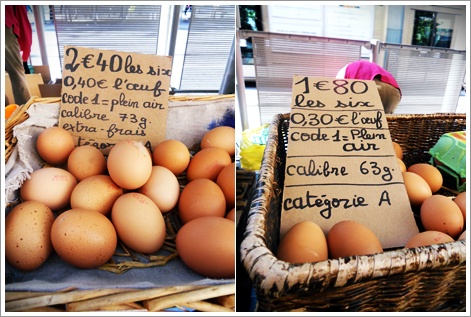 2€40 les six
0,40€ l'œuf
code 1=plein air
calibre 73g.
extra-frais
catégorie A
1€80
les six
0,30€ l'œuf
code 1=Plein
air
calibre 63g.
catégorie A